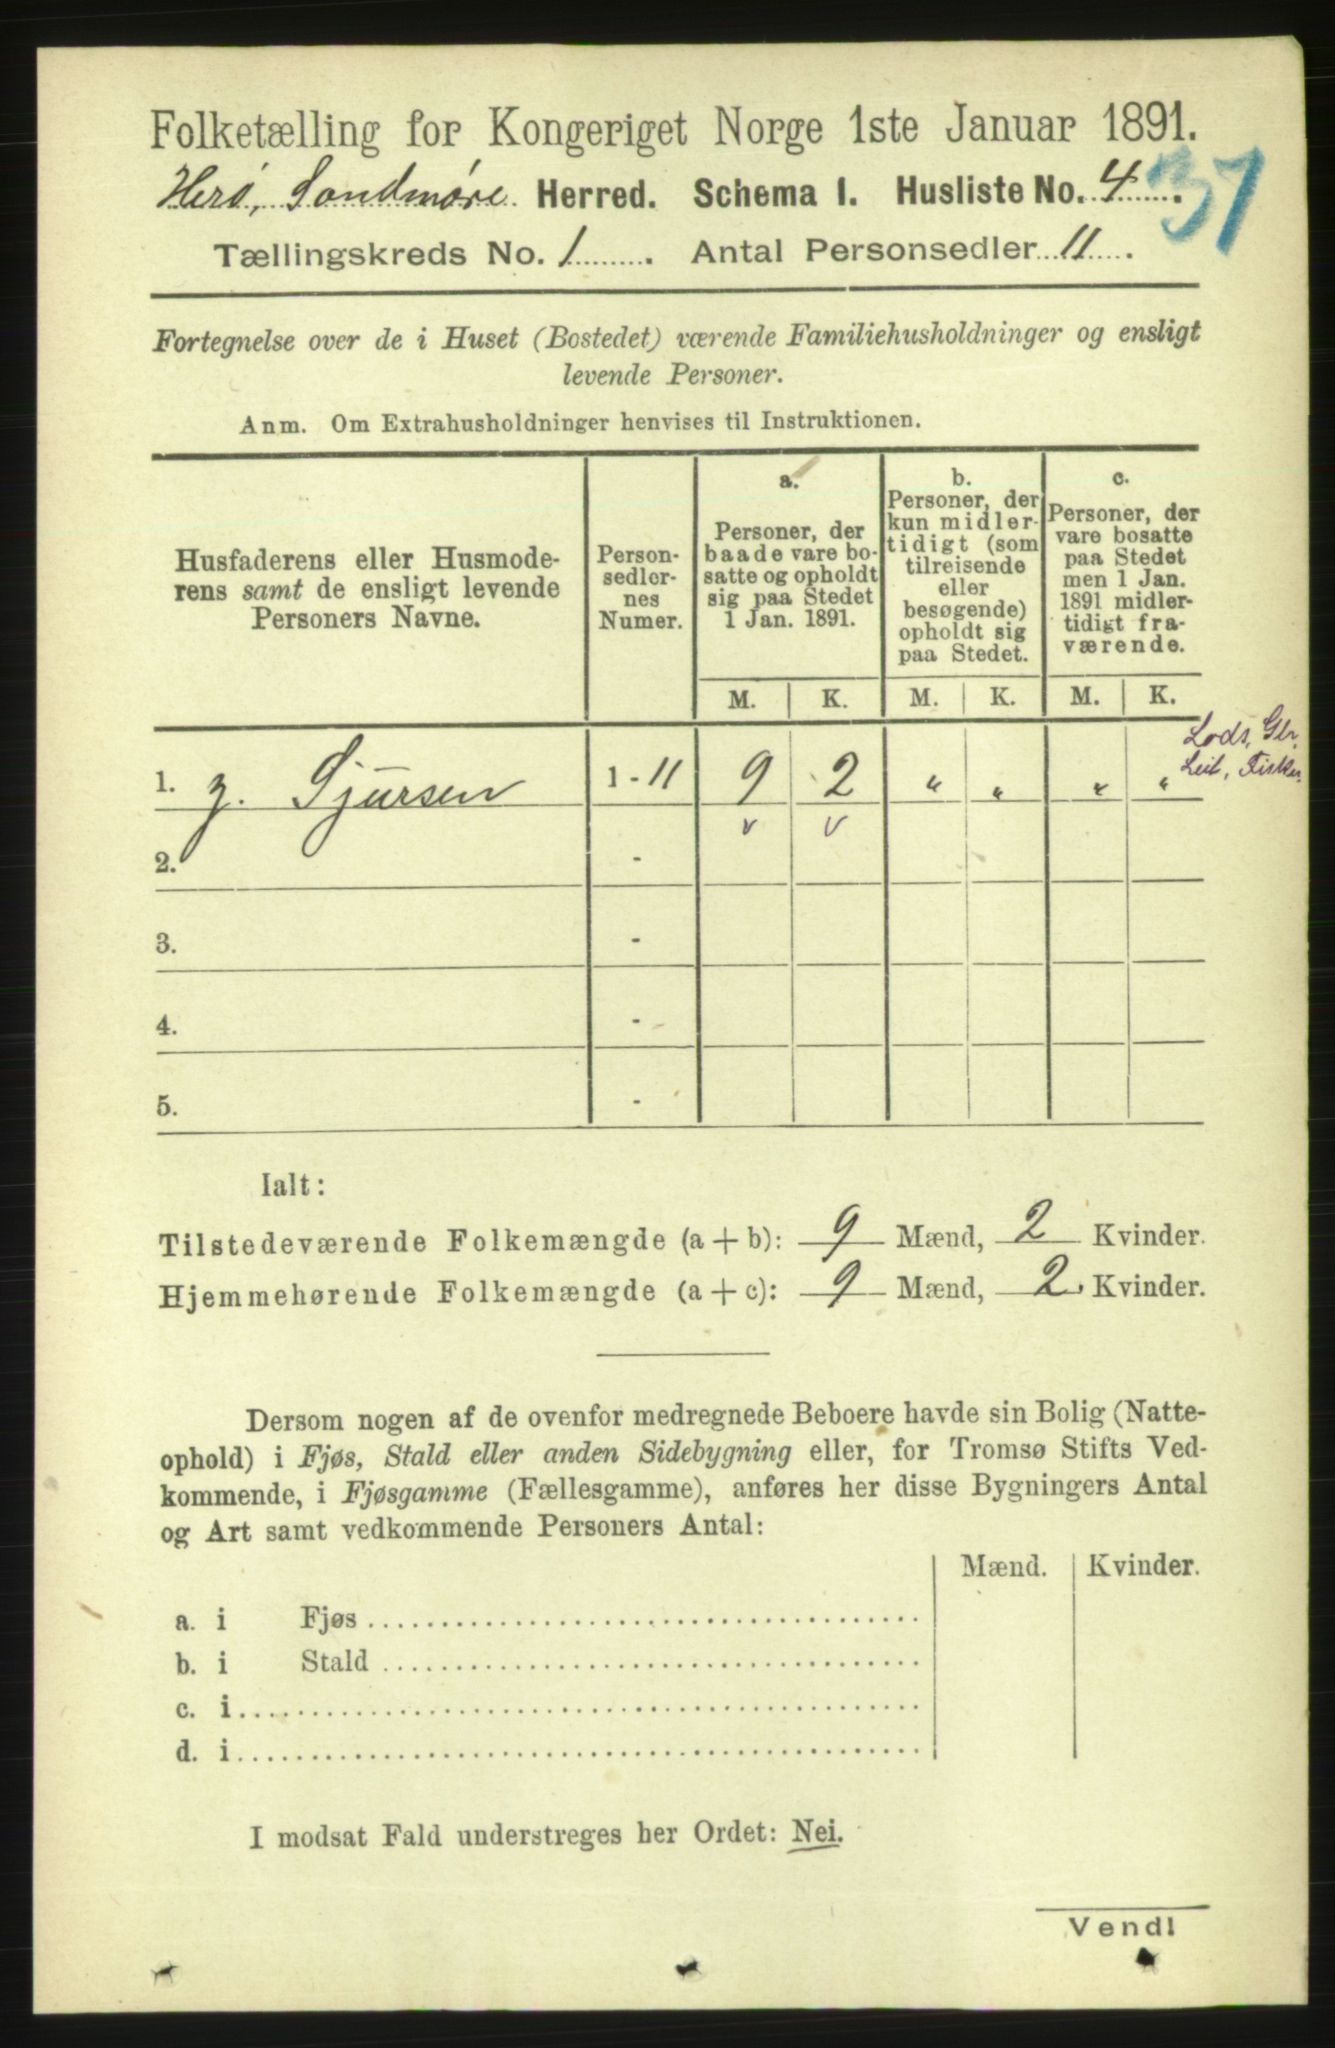 Folketælling for Kongeriget Norge 1ste Januar 1891.
Herø, Søndmøre Herred. Schema 1. Husliste No. 4
37
Tællingskreds No. 1 . Antal Personsedler 11 .
Fortegnelse over de i Huset (Bostedet) værende Familiehusholdninger og ensligt
levende Personer.
Anm. Om Extrahusholdninger henvises til Instruktionen.
Husfaderens eller Husmode-
rens samt de ensligt levende
Personers Navne.
Person-
sedler-
nes
Numer.
a.
Personer, der
baade vare bo-
satte og opholdt
sig paa Stedet
1 Jan. 1891.
b.
Personer, der
kun midler-
tidigt (som
tilreisende
eller
besøgende)
opholdt sig
paa Stedet.
c.
Personer, der
vare bosatte
paa Stedet
men 1 Jan.
1891 midler-
tidigt fra-
værende.
M. K. M. K. M. K.
Lods, Gbr,
Leil, Fisker
1. J. Sjursen 1 - 11 9 2 " " " "
v v
2. -
3. -
4. -
5. -
Ialt:
Tilstedeværende Folkemængde (a + b): 9 Mænd, 2 Kvinder.
Hjemmehørende Folkemængde (a + c): 9 Mænd, 2 Kvinder.
Dersom nogen af de ovenfor medregnede Beboere havde sin Bolig (Natte-
ophold) i Fjøs, Stald eller anden Sidebygning eller, for Tromsø Stifts Ved-
kommende, i Fjøsgamme (Fællesgamme), anføres her disse Bygningers Antal
og Art samt vedkommende Personers Antal:
Mænd. Kvinder.
a. i Fjøs
b. i Stald
c. i
d. i
I modsat Fald understreges her Ordet: Nei.
Vend!